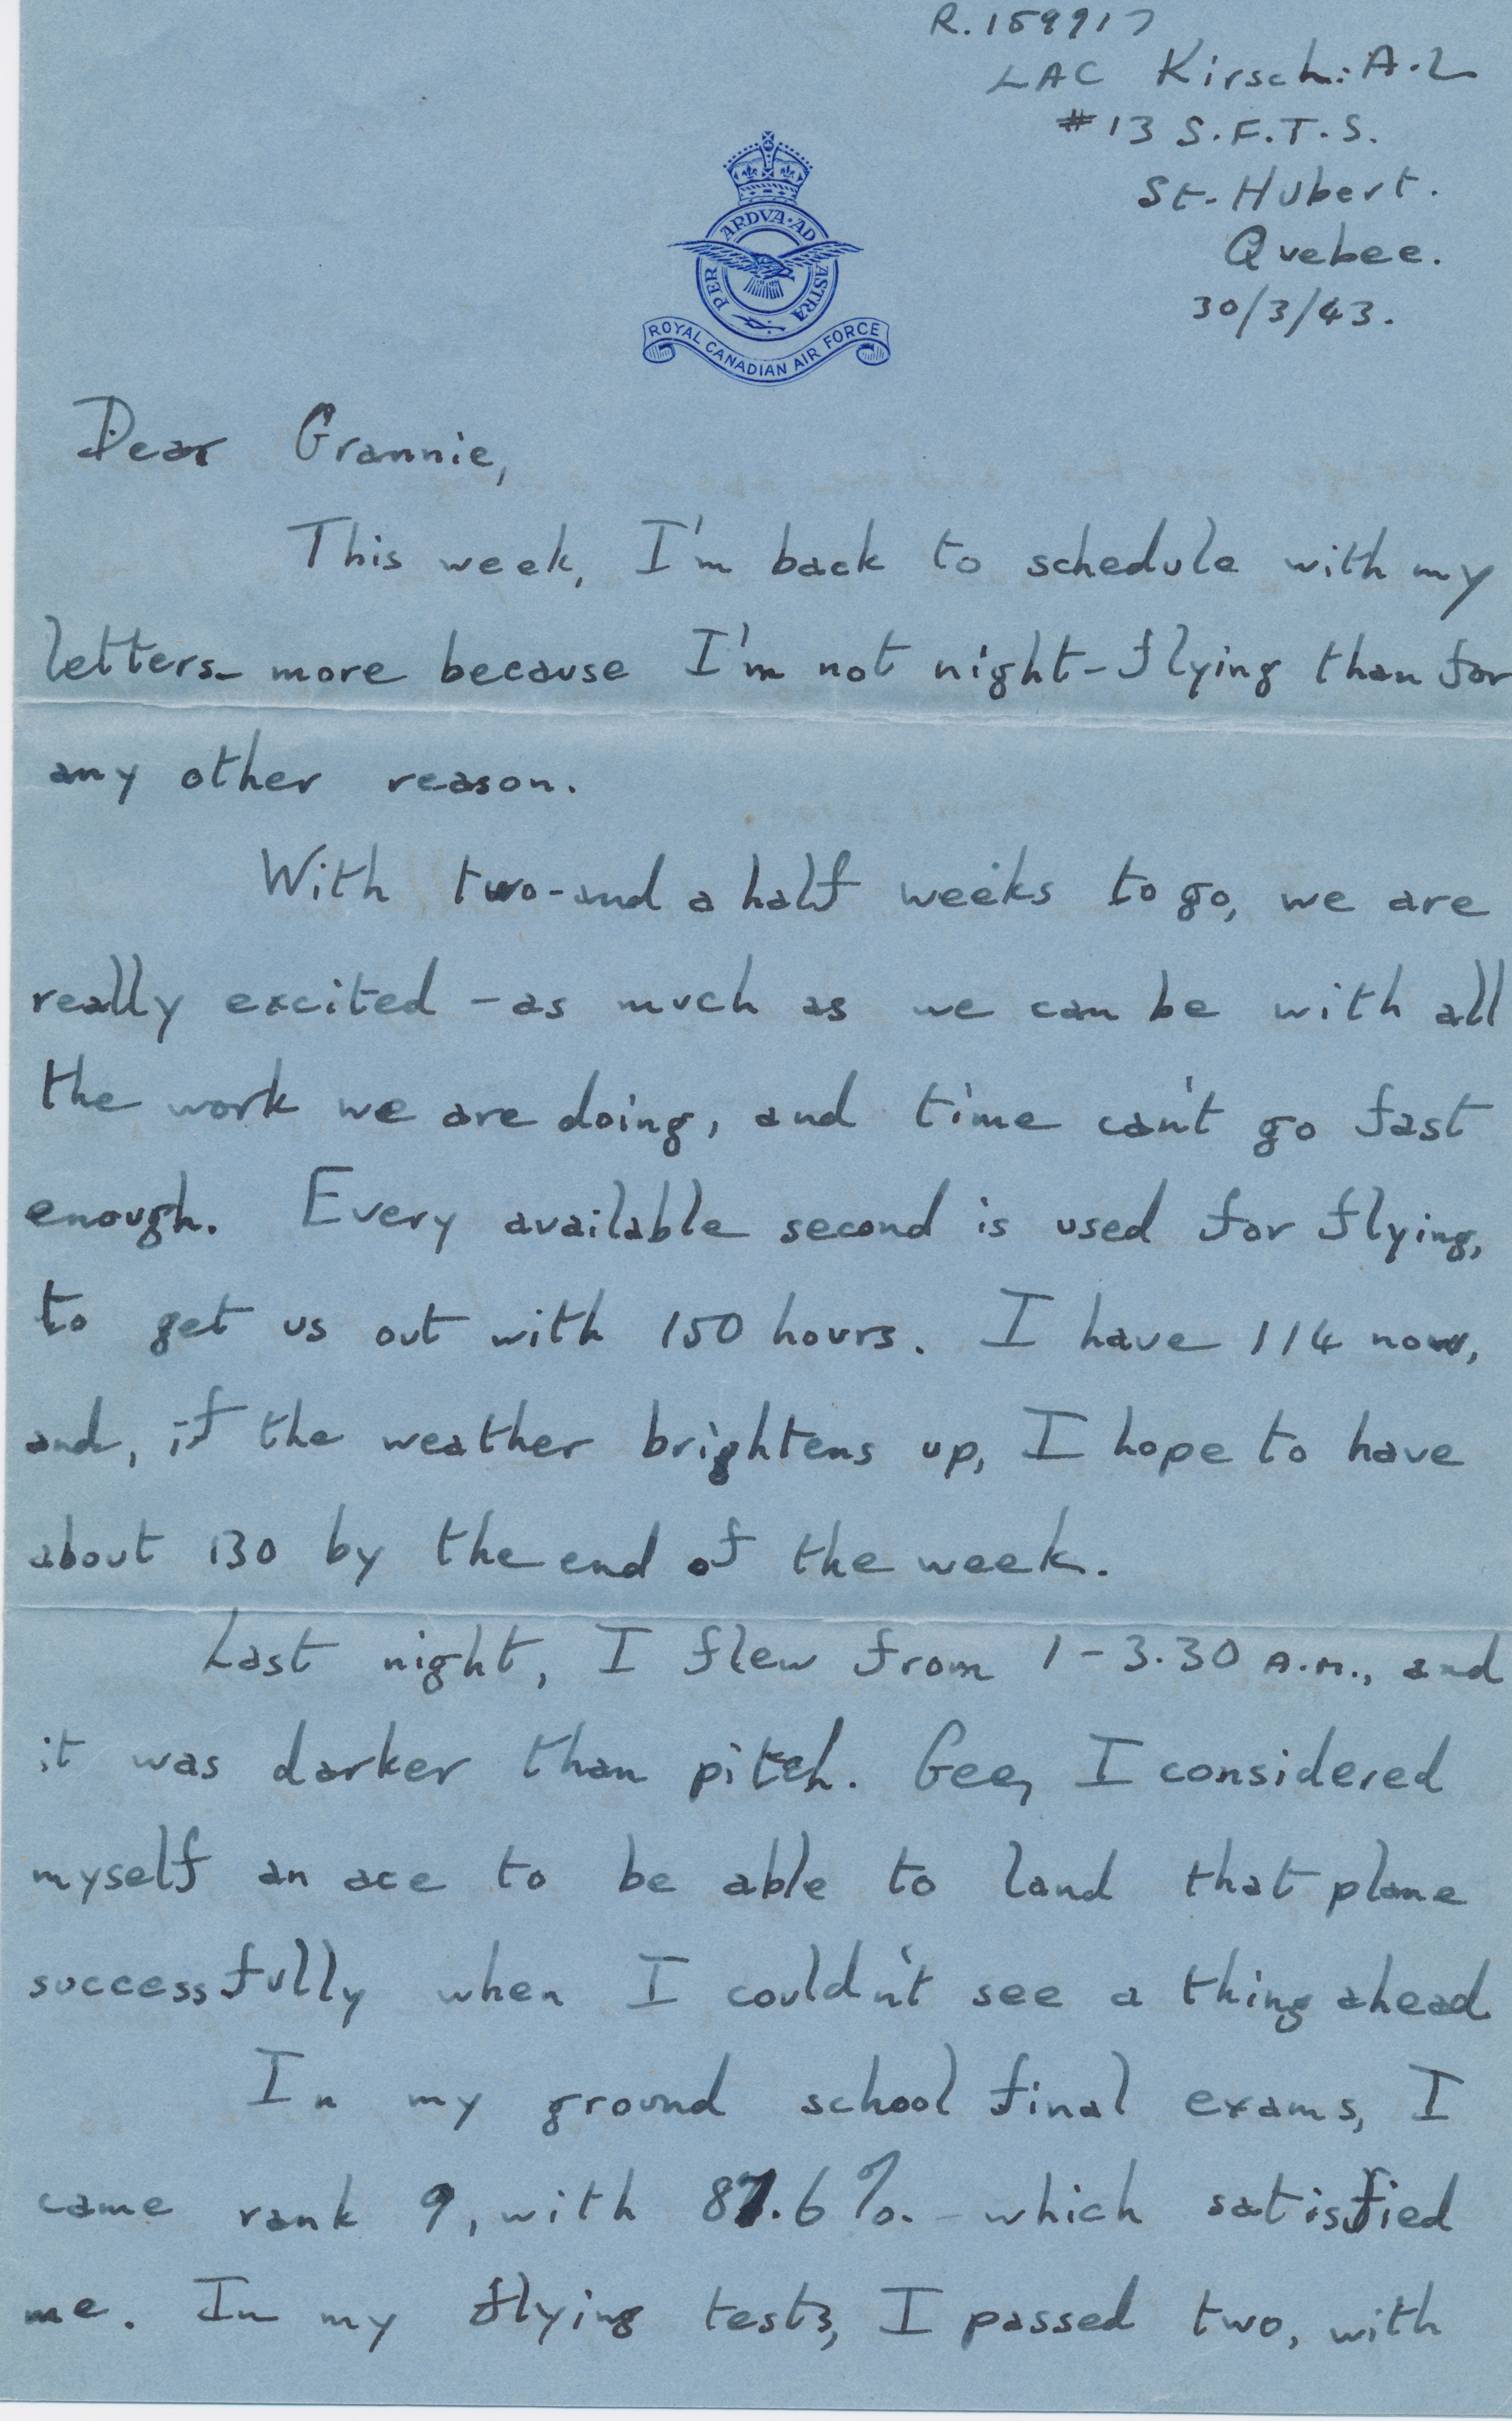 R.159917
LAC Kirsch: A.L
#13 S.F.T.S.
St. Hubert.
Quebec.
30/3/43.
PER ARDVA·AD ASTRA
ROYAL CANADIAN AIR FORCE
Dear Grannie,
This week, I'm back to schedule with my
letters - more because I'm not night-flying than for
any other reason.
With two-and a half weeks to go, we are
really excited - as much as we can be with all
the work we are doing, and time can't go fast
enough. Every available second is used for flying,
to get us out with 150 hours. I have 114 now,
and, if the weather brightens up, I hope to have
about 130 by the end of the week.
Last night, I flew from 1-3.30 A.M., and
it was darker than pitch. Gee, I considered
myself an ace to be able to land that plane
successfully when I couldn't see a thing ahead
In my ground school final exams, I
came rank 9, with 87.6%. - which satisfied
me. In my flying tests, I passed two, with